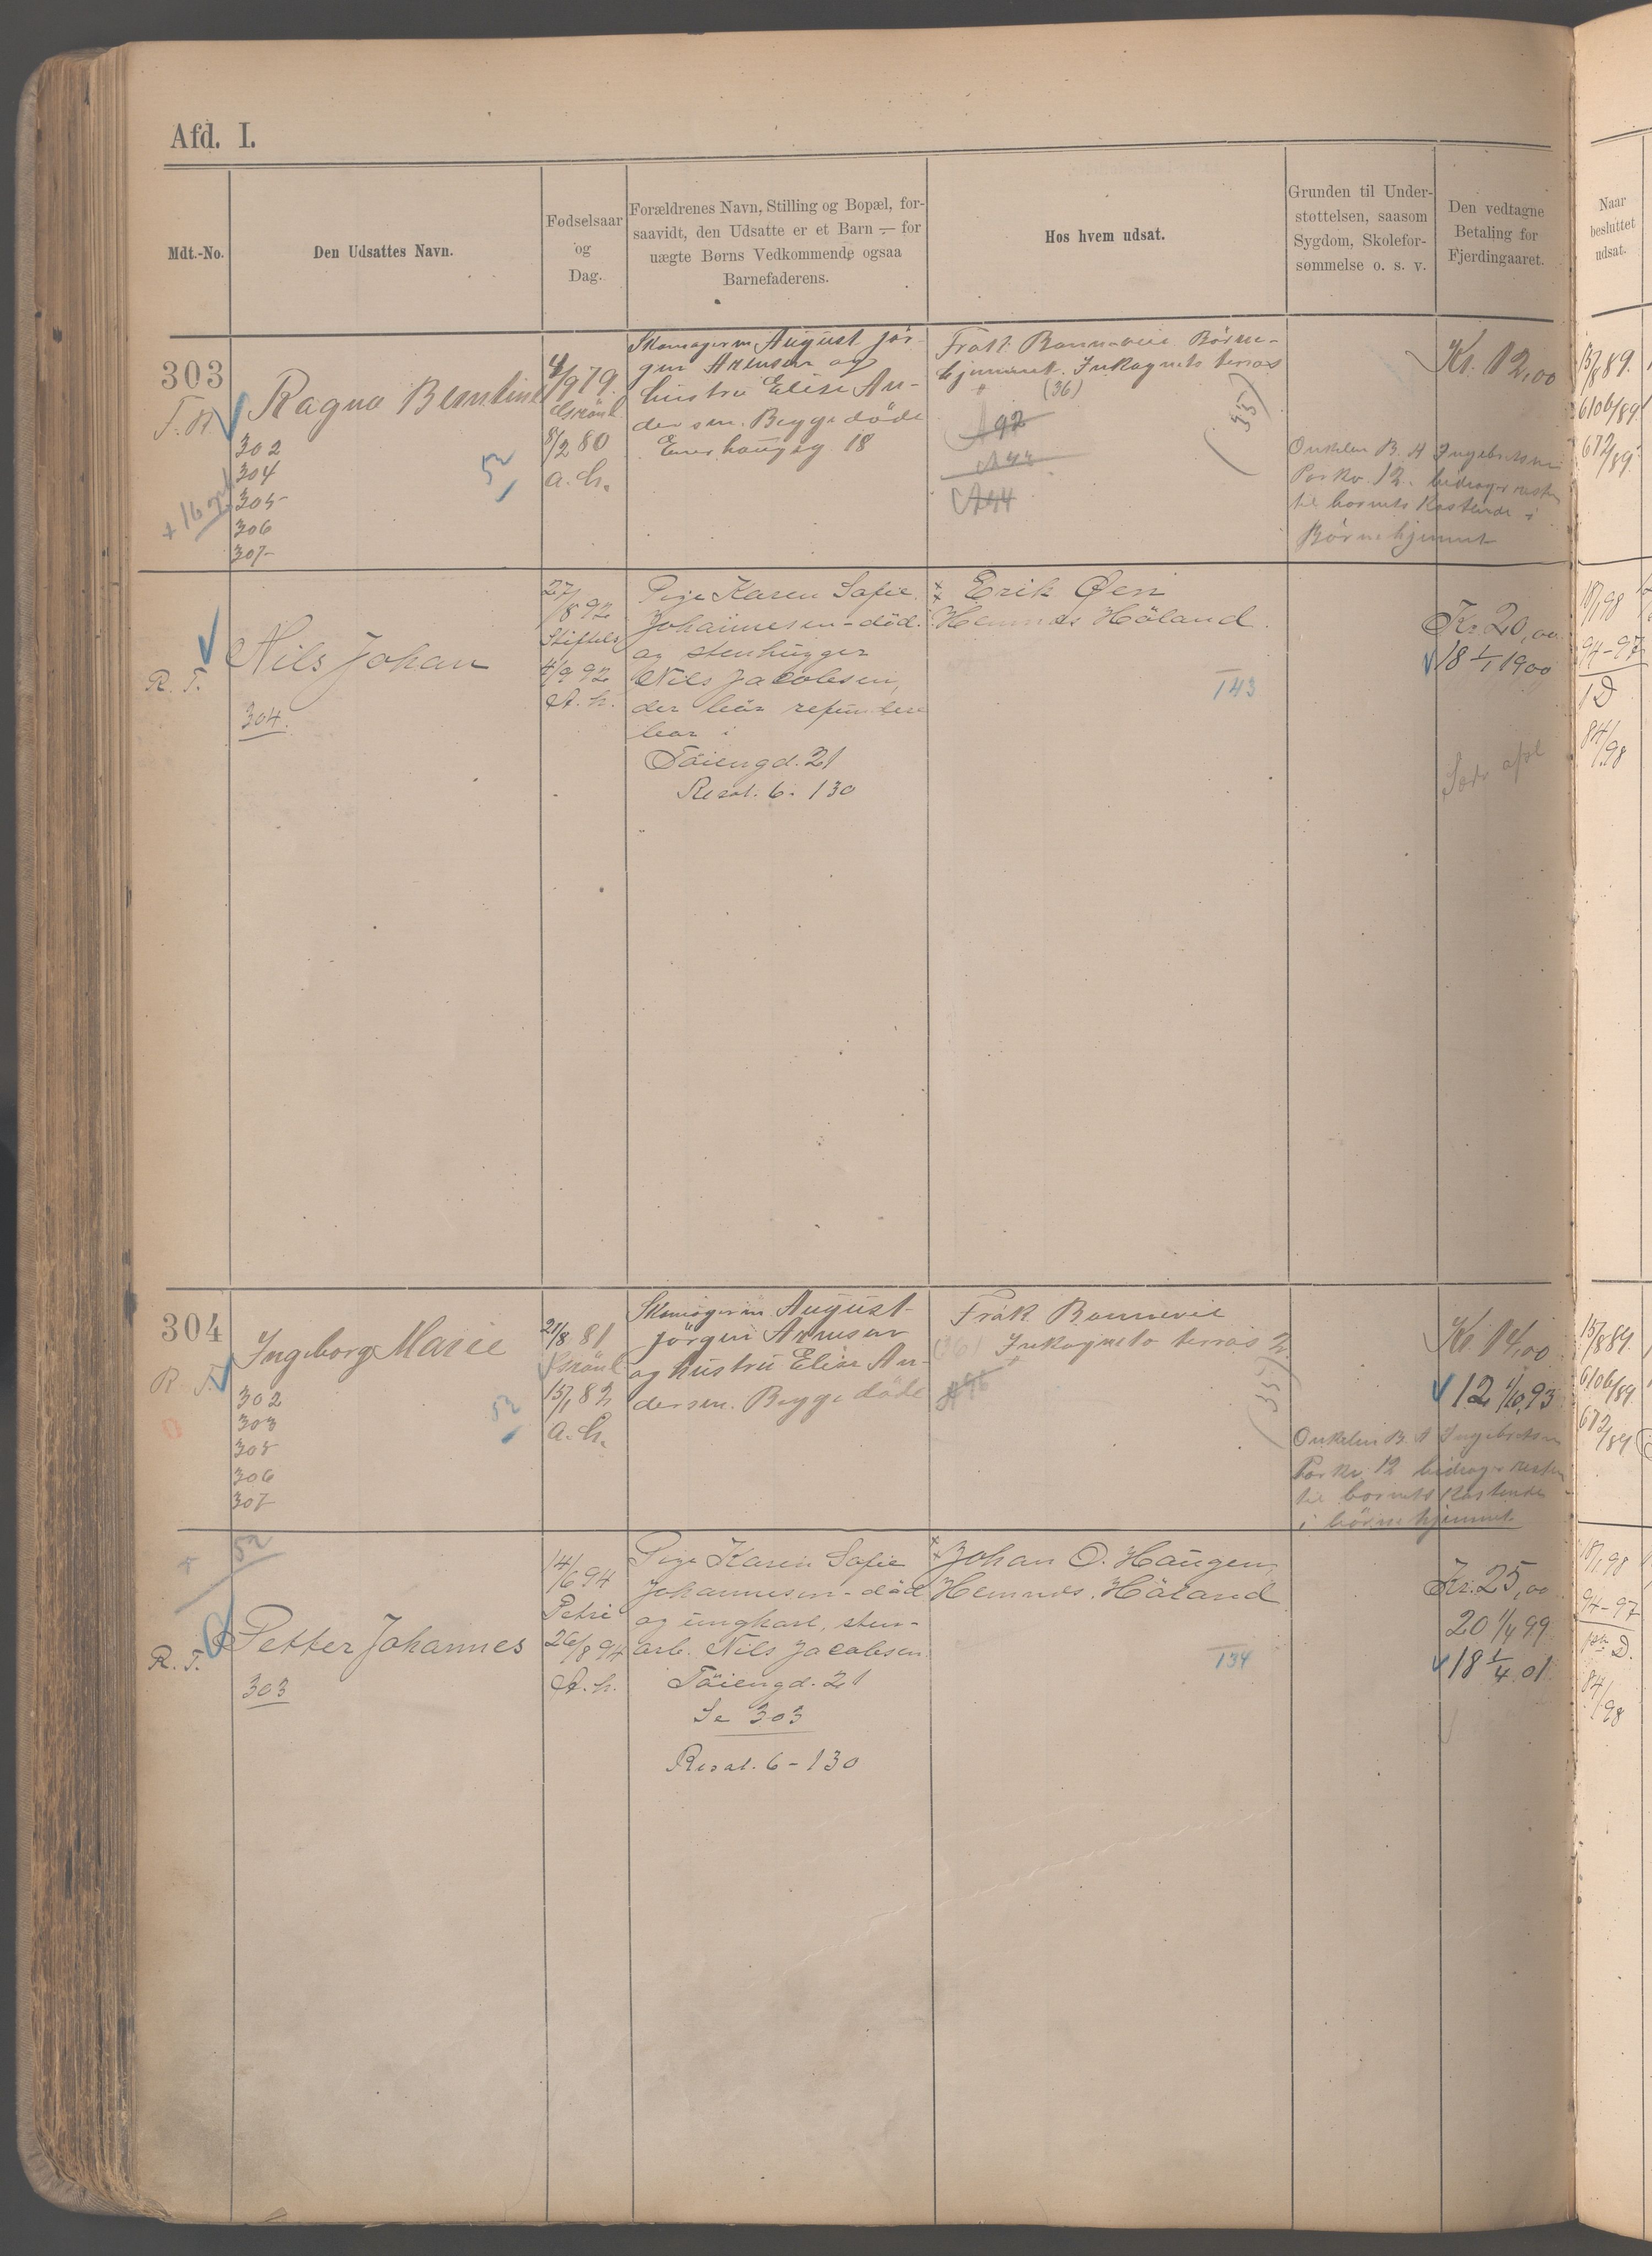 Afd. I.
Mdt.-No.
Den Udsattes Navn.
Fødselsaar
og
Dag.
Forældrenes Navn, Stilling og Bopæl, for-
saavidt, den Udsatte er et Barn — for
uægte Børns Vedkommende ogsaa
Barnefaderens.
Hos hvem udsat.
Grunden til Under-
støttelsen, saasom
Sygdom, Skolefor-
sømmelse o. s. v.
Den vedtagne
Betaling for
Fjerdingaaret.
Naar
besluttet
udsat.
303
Ragna Berntine
302
304
305
306
307
52
4/9 79.
Grönl.
8/2 80
a. h.
Skomagerm August Jör-
gen Arensen og
hustru Elise An-
dersen. Begge döde
Enerhaugg 18
Frøk. Bonnevie Börne-
hjemmet. Inkognito terras
(36)
A 92
A44
(35)
Onkelen B. A Ingebretsen
Kr. 12,00
15/8 89.
6106/89
672/89.
til barnets Kostende i
Börnehjemmet
R. T.
Nils Johan
304.
27/8 92
Stiftels
4/9 92
A. h.
Pige Karen Sofie
Johannesen - död.
og stenhugger
Nils Jacobsen,
der bör refundere
bor i
Töiengd. 21
Resol. 6. 130
Erik Øen
Hemnes Höland.
143
Kr. 20,00
18 1/1 1900
18/1 98
94-97
1 D
84/98
304
R. T.
Ingeborg Marie
302
303
305
306
307
52
21/8 81
Grönl.
15/1 82
a. h.
Skomagerm August
Jörgen Arensen
og hustru Elise An-
dersen. Begge döde
Frøk. Bonnevie
(36) Inkognito terras 2.
(35)
Onkelen B. A Ingebretsen
til barnets Kostende
i börnehjemmet
Kr. 14,00
12 1/10 93
15/8 89.
6106/89
672/89
52
R. T.
Petter Johannes
303
14/6 94
Petri
26/8 94
A. h.
Pige Karen Sofie
Johannesen - död
og ungkarl, sten-
arb. Nils Jacobsen
Töiengd. 21
Se 303
Resol. 6 - 130
Johan O. Haugen,
Hemnes. Höland
134
Kr. 25,00
20 1/4 99
18 1/4 01
18/1 98
94-97
84/98